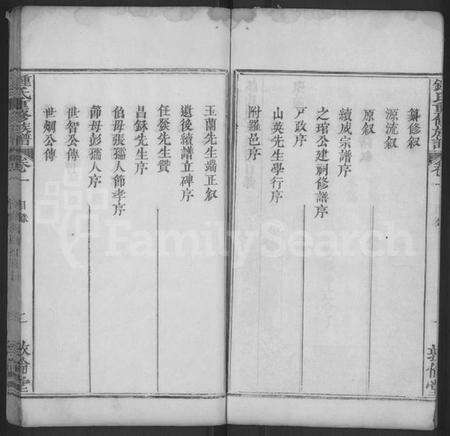 鍾氏重修族譜 卷一
纂修叙
源流叙
原叙
續威宗譜序
之琯公建祠修譜序
戸政序
山英先生學行序
附羅邑序
敦倫堂
玉蘭先生端正叙
遺後續譜立碑序
任發先生贊
昌錄先生序
伯母張孺人節孝序
節母彭孺人序
世智公傳
世炯公傳
鍾氏重修族譜 卷一 目錄
敦倫堂
FamilySearch